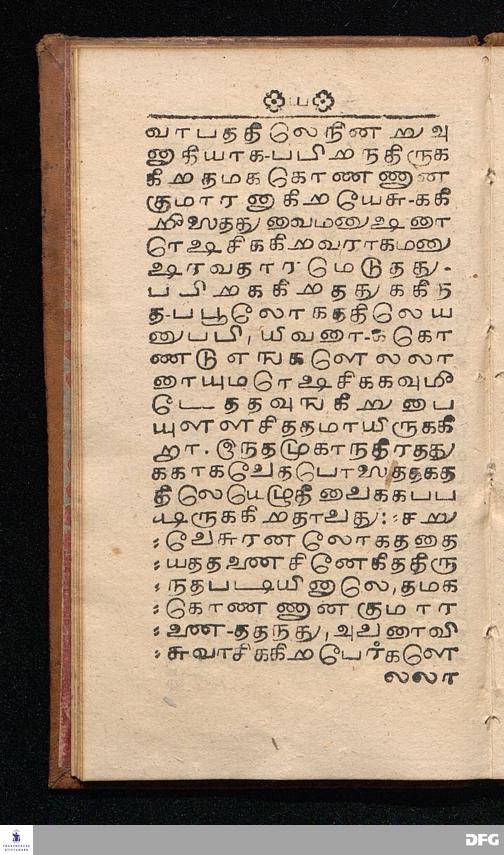 ய
வாபததீலேநீன றுவு
னுதியாக-பபிறநதிருக
கீறதமககொணணுன
குமாரனுகிறயேசு-ககீ
றிஸதது வைமனுஷனா
ரெஷசிககிறவராகமனு
ஷரவதாரமெடுதது-
பபிறககிறததுககீந
த-பபூலோகததிலெய
னுபபி, யிவனா-க கொ
ணடு எஙகளெலலா
னாயுமரெஷசிககவுமி
டே ததவுஙகீறுபை
யுளளசிததமாயிருககீ
றா. இநதமுகாநதீரதது
ககாகவேதபொஸததகத
தீலெயெழுதீ வைககபப
டிருககிறதாவது: :சறு
:வேசுரன லோகததை
:யததவணசினேகீததீரு
:நதபடடியினுலெ, தமக
:கொணணுன குமார
:வண-ததநது, அவனாவி
:சுவாசிககிறபேர்களெ
லலா
DFG